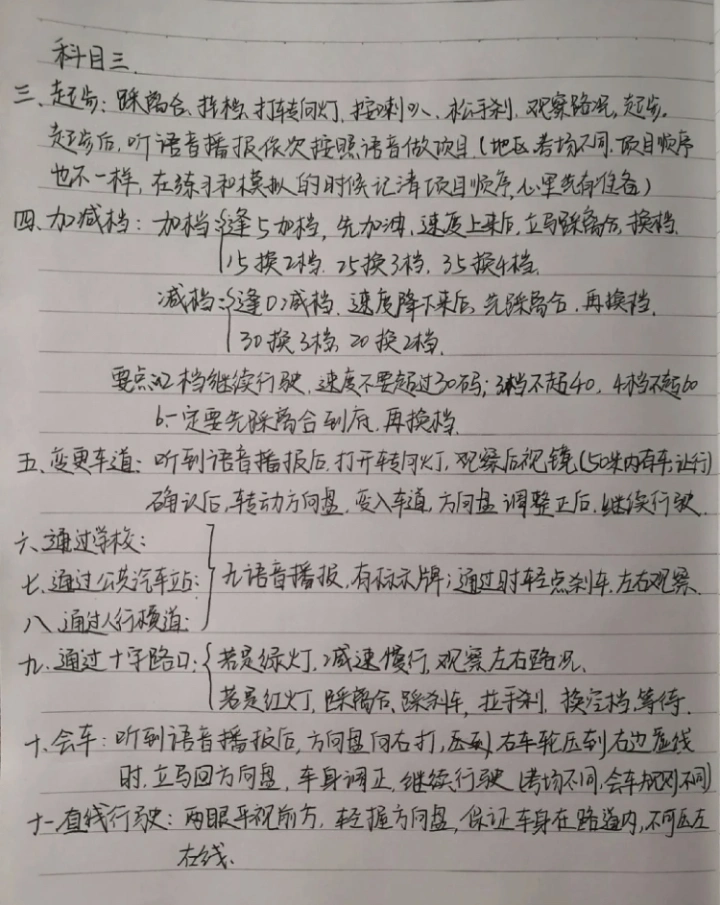 科目三
三、起步：踩离合、挂档、打转向灯、按喇叭、松手刹、观察路况、起步。
起步后，听语音播报依次按照语音做项目（地区、考场不同，项目顺序
也不一样，在练习和模拟的时候记清项目顺序，心里先有准备）
四、加减档：加档：逢5加档，先加油，速度上来后，立马踩离合，换档。
15换2档，25换3档，35换4档。
减档：逢0减档，速度降下来后，先踩离合，再换档。
30换3档，20换2档。
要点：2档继续行驶，速度不要超过30码；3档不超40，4档不超60
一定要先踩离合到底，再换档。
五、变更车道：听到语音播报后，打开转向灯，观察后视镜（50米内有车，让行）
确认后，转动方向盘，变入车道，方向盘调整正后，继续行驶。
六、通过学校：
七、通过公共汽车站：
八、通过人行横道：
无语音播报，有标示牌；通过时轻点刹车，左右观察。
九、通过十字路口：若是绿灯，减速慢行，观察左右路况、
若是红灯，踩离合、踩刹车，拉手刹，换空档，等待。
十、会车：听到语音播报后，方向盘向右打，右车轮压到右边虚线
时，立马回方向盘，车身调正，继续行驶（考场不同，会车规则不同）
十一、直线行驶：两眼平视前方，轻握方向盘，保证车身在路道内，不可压左
右线、